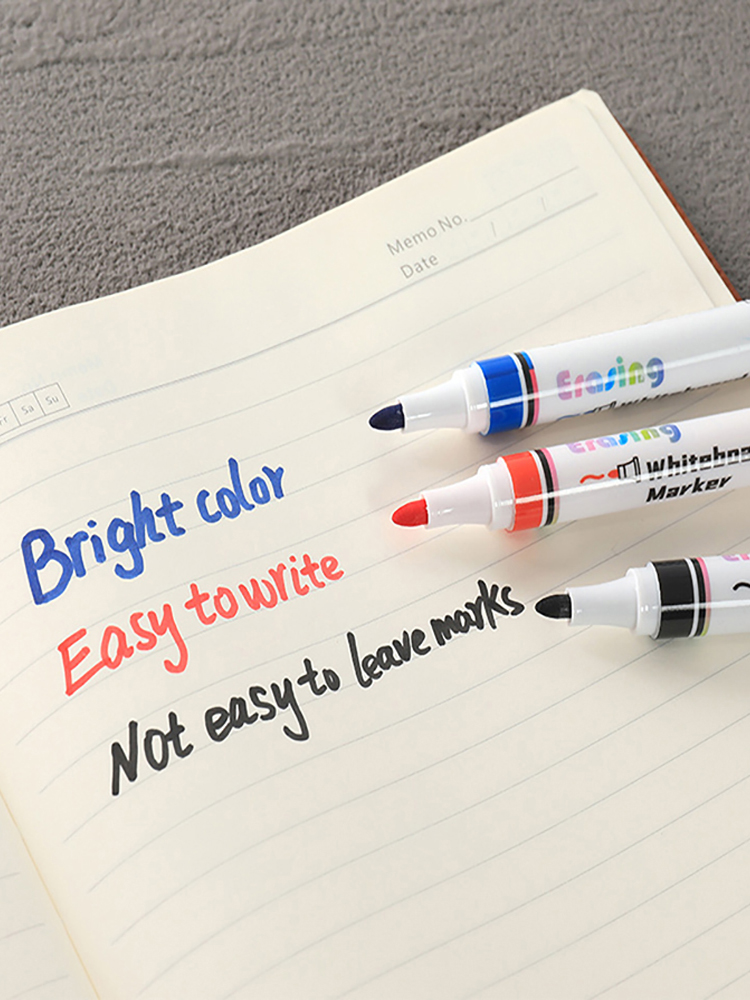 Memo No.
Date
Sa Su
Bright color
Easy to write
Not easy to leave marks
Erasing
Erasing
Marker